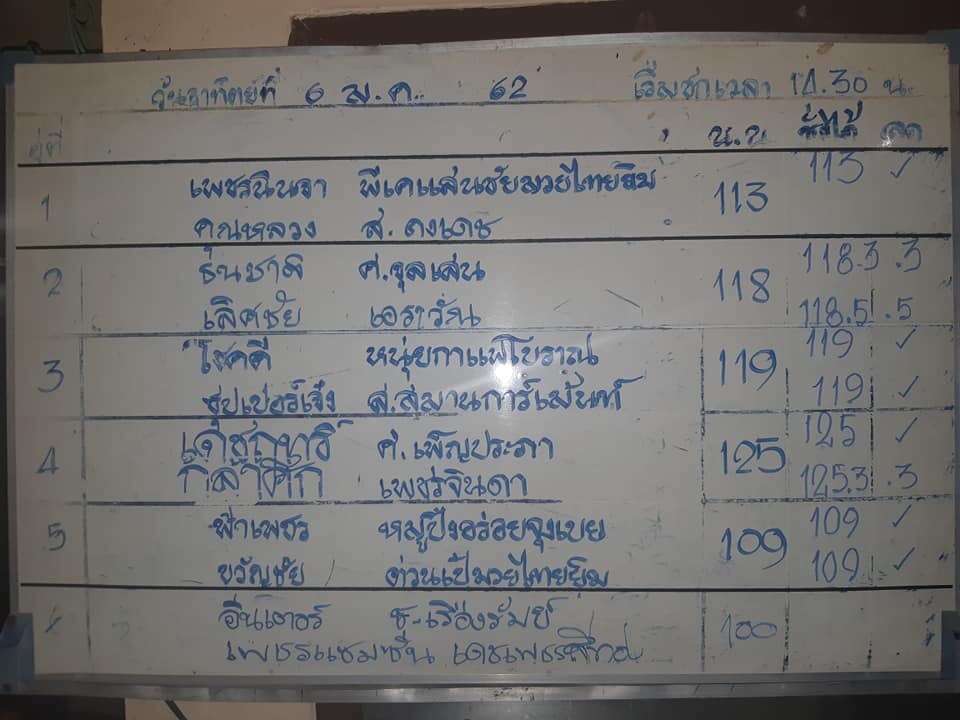 วันอาทิตย์ที่ 6 ม.ค. 62 เริ่มชกเวลา 14.30 น.
คู่ที่ น.น ชั่งได้ ลด
1 เพชรนินจา พีเคแสนชัยมวยไทยยิม 113 113 ✓
คุณหลวง ส.ดงเดช
2 ธนชาติ ศ.จุลเสน 118 118.3 .3
เลิศชัย เอราวัณ 118.5 .5
3 โชคดี หนุ่ยกาแฟโบราณ 119 119 ✓
ซุปเปอร์เจ๋ง ส.สมานการ์เม้นท์ 119 ✓
4 ศ.เพ็ญประภา 125 125 ✓
เพชรจินดา 125.3 .3
5 ฟ้าเพชร หมูปิ้งอร่อยจุงเบย 109 109 ✓
ขวัญชัย ต่วนเป๋มวยไทยยิม 109 ✓
อินเตอร์ ช.เรืองรัมย์ 100
เพชรแชมชื่น